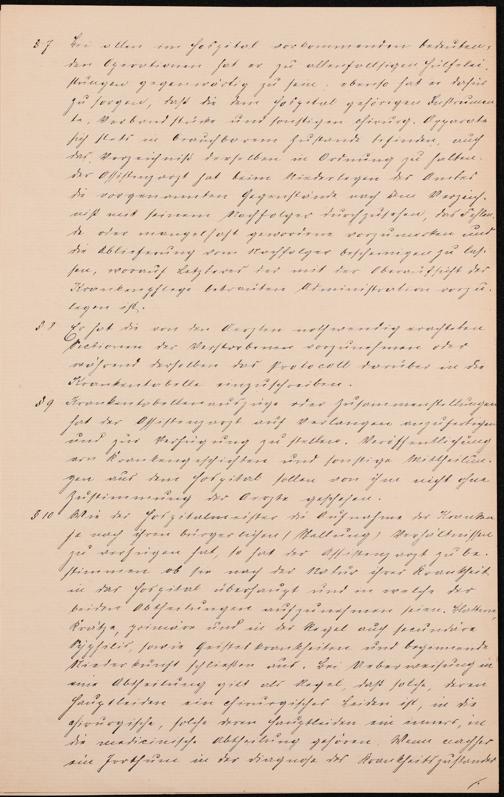 § 7 Bei allen im Hospital vorkommenden bedeuten-
den Operationen hat er zu allenfallsigen Hilfelei-
stungen gegenwärtig zu sein; ebenso hat er dafür
zu sorgen, daß die dem Hospital gehörigen Instrumen-
te, Verbandstücke und sonstigen chirurg. Apparate
sich stets in brauchbarem Zustande befinden, auch
das Verzeichniß derselben in Ordnung zu halten.
Der Assistenzarzt hat beim Niederlegen des Amtes
die vorgenannten Gegenstände nach dem Verzeich-
niß mit seinem Nachfolger durchzusehen, das Fehlen-
de oder mangelhaft gewordene vorzumerken und
die Ablieferung vom Nachfolger bescheinigen zu las-
sen, worauf Letzteres der mit der Oberaufsicht der
Krankenpflege betrauten Administration vorzu-
legen ist.
§ 8 Er hat die von den Aerzten nothwendig erachteten
Sectionen der Verstorbenen vorzunehmen oder
während derselben das Protocoll darüber in die
Krankentabelle einzuschreiben.
§ 9 Krankentabellenauszüge oder Zusammenstellungen
hat der Assistenzarzt auf Verlangen anzufertigen
und zur Verfügung zu stellen. Veröffentlichung
von Krankengeschichten und sonstige Mittheilun-
gen aus dem Hospital sollen von ihm nicht ohne
Zustimmung der Aerzte geschehen.
§ 10 Wie der Hospitalmeister die Aufnahme der Kranken
je nach ihren bürgerlichen (Stellung) Verhältnissen
zu verfügen hat, so hat der Assistenzarzt zu be-
stimmen ob sie nach der Natur ihrer Krankheit
in das Hospital überhaupt und in welche der
beiden Abtheilungen aufzunehmen seien. Blattern,
Krätze, primäre und in der Regel auch secundäre
Syphilis, sowie Geisteskrankheiten und beginnende
Niederkunft schließen aus. Bei Ueberweisung in
eine Abtheilung gilt als Regel, daß solche, deren
Hauptleiden ein chirurgisches Leiden ist, in die
chirurgische, solche deren Hauptleiden ein inneres, in
die medicinische Abtheilung gehören. Wenn nachher
ein Irrthum in der Diagnose des Krankheitszustandes